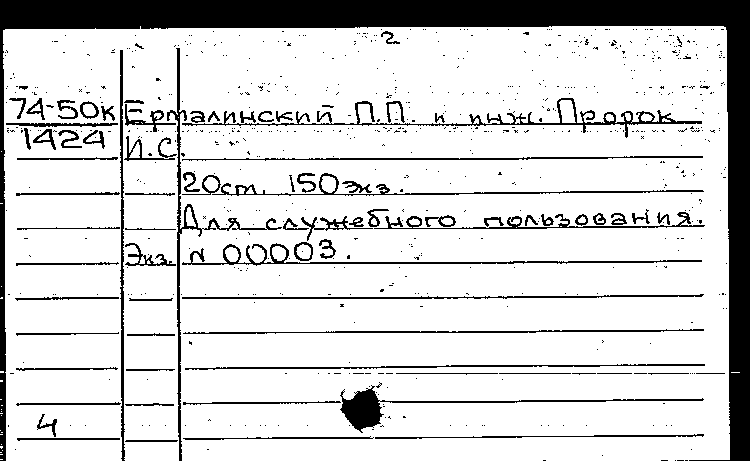 2
74-50к Ерталинский П.П. и инж. Пророк
1424 И.С.
20ст. 150экз.
Для служебного пользования.
Экз. N 00003.
4